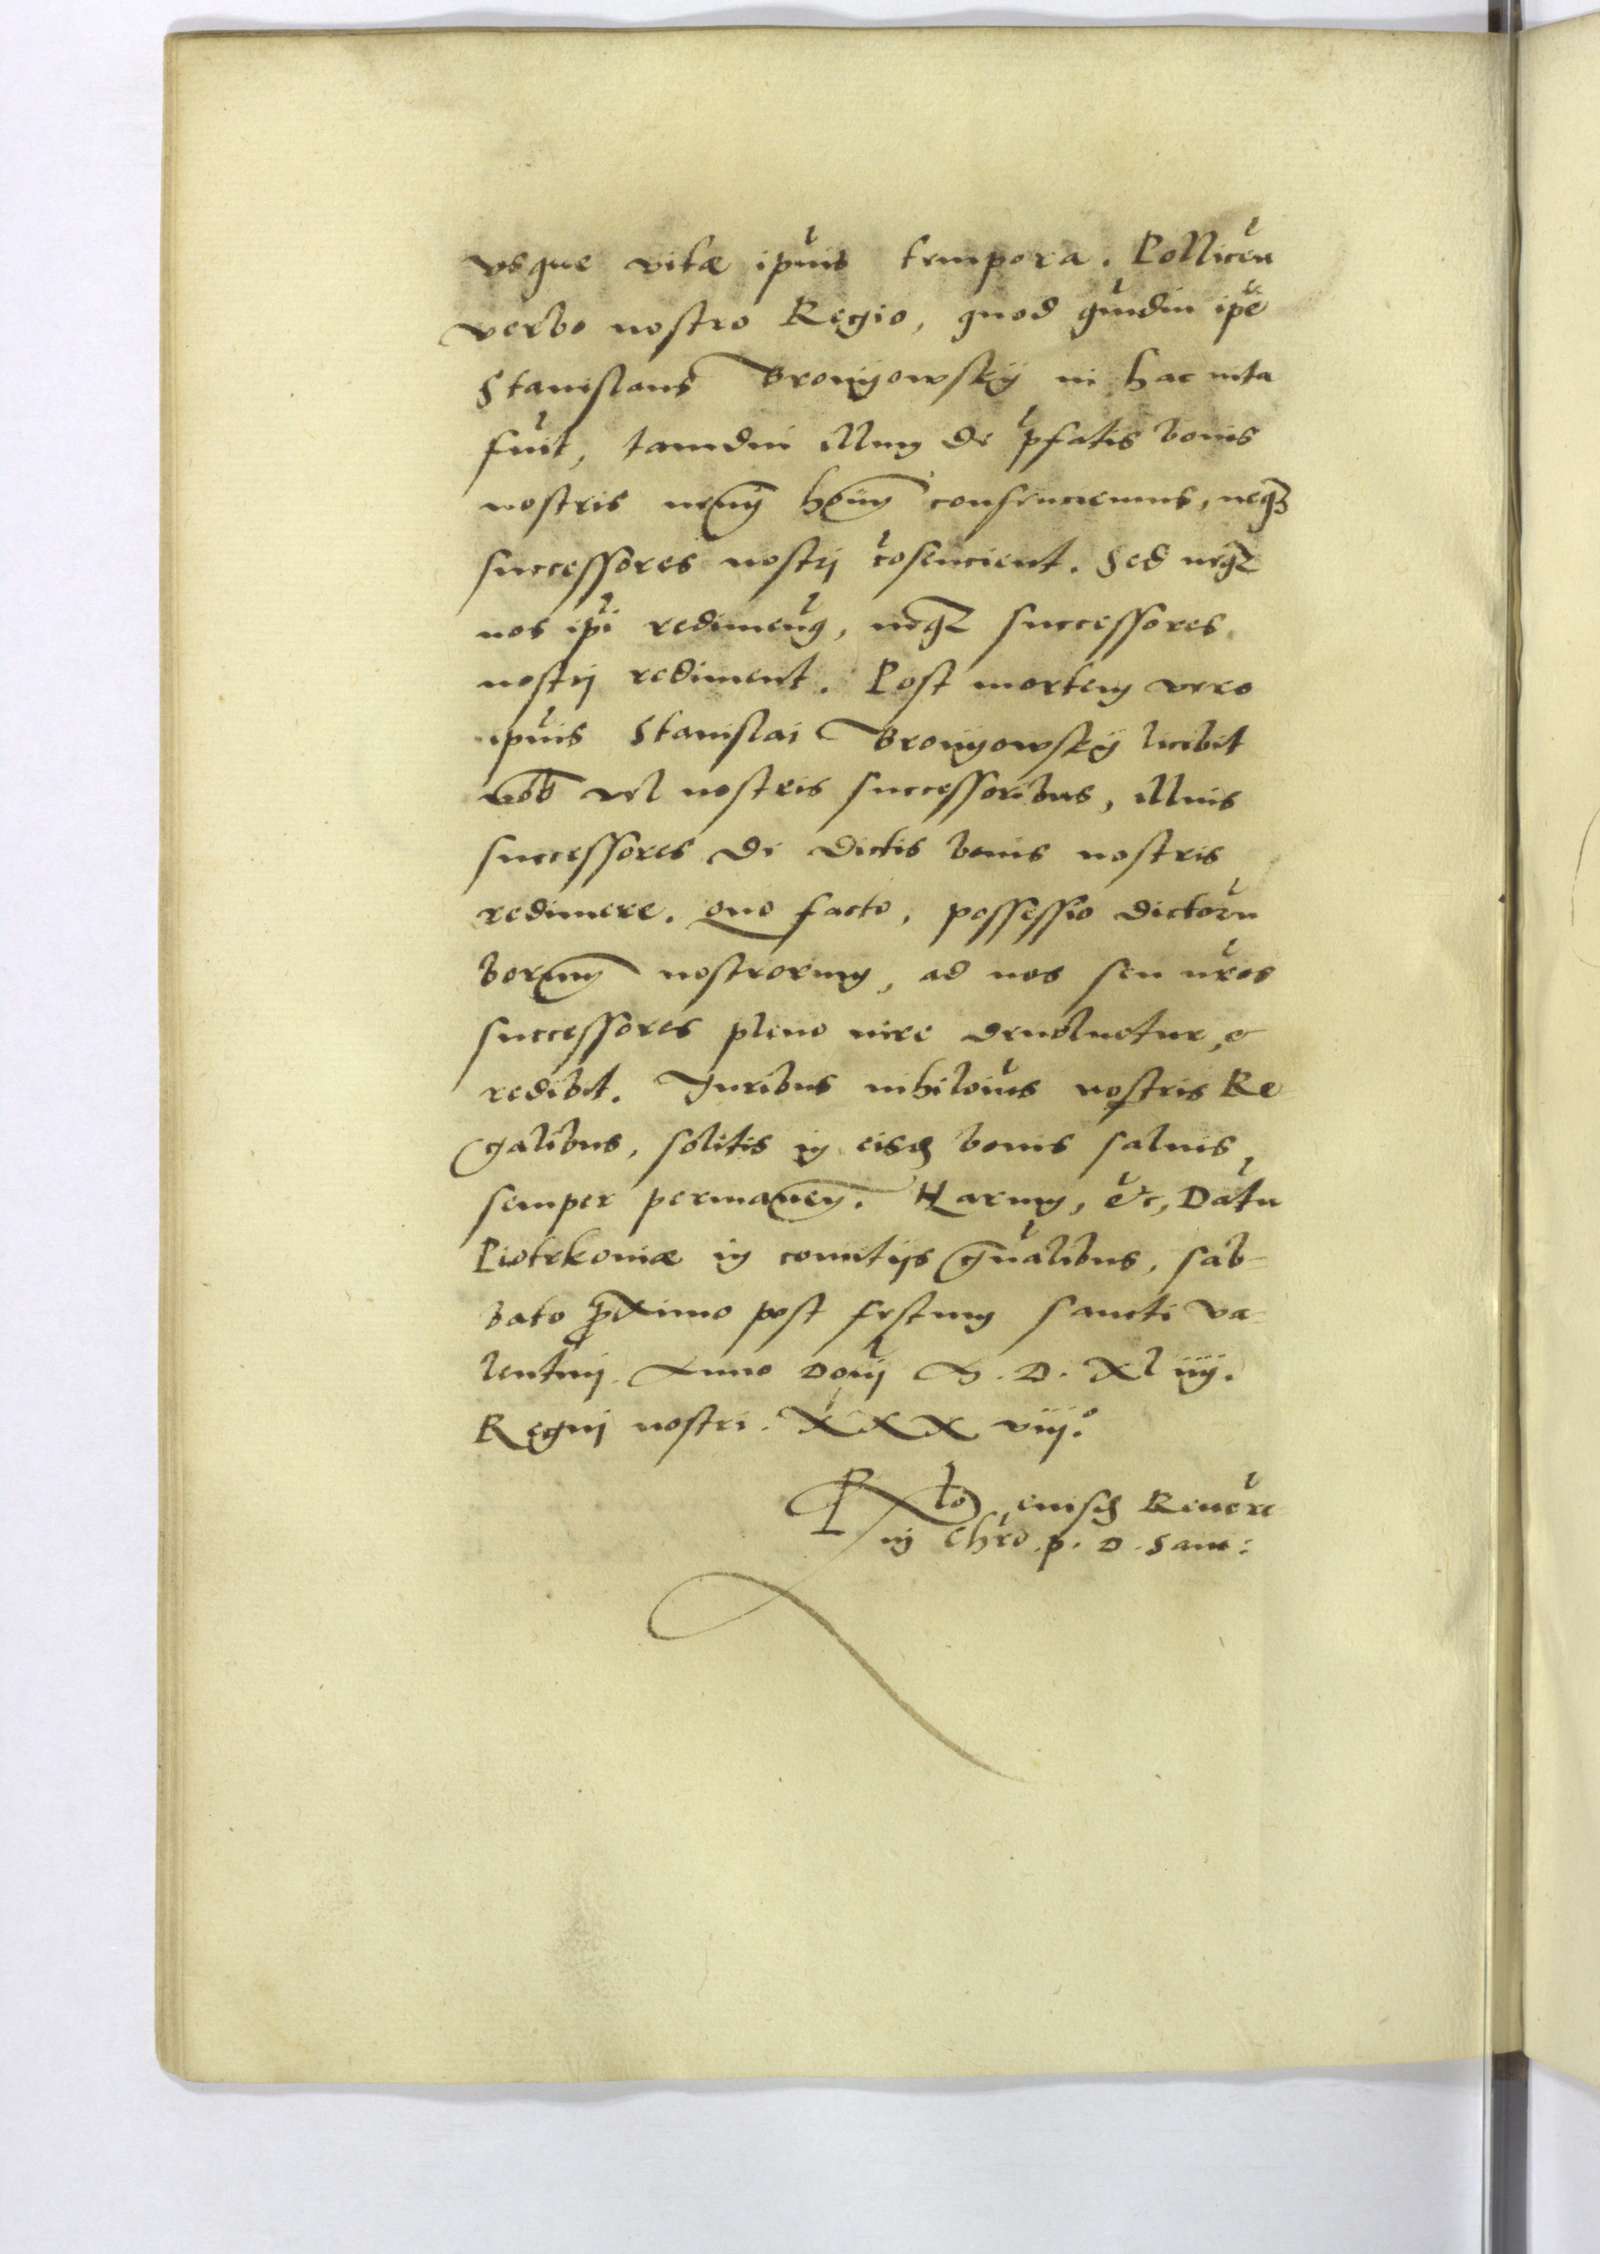 vsque vitæ ipius tempora. Polliceu
verbo nostro Regio, quod qmdiu ipe
Stanislaus Broniyowskÿ in hac vita
fuit, tamdiu illum de pfatis bonis
nostris consenciemus, neq3
successores nostrj cosencient. Sed neq3
nos ipi redimemus, neq3 successores
nostrj rediment. Post mortem vero
ipius Stanislai Broniyowskÿ licebit
nob vel nostris successoribus, illius
successores de dictis bonis nostris
redimere. Quo facto, possessio dictoru
bonorum nostrorum, ad nos seu nros
successores pleno iure deuoluetur, &
redibit. Juribus nihiloius nostris Re
galibus, solitis in eisd bonis saluis,
semper permanen. Harum, &c, Datu
Piotrkoniæ in comitijs gnalibus, sab-
bato proximo post festum sancti Va-
lentinj. Anno Donj M. D. Xl iiij.
Regnj nostri. XXX viij.°
Rlo eiusd Reuere
in Chro. p. D. Sam: